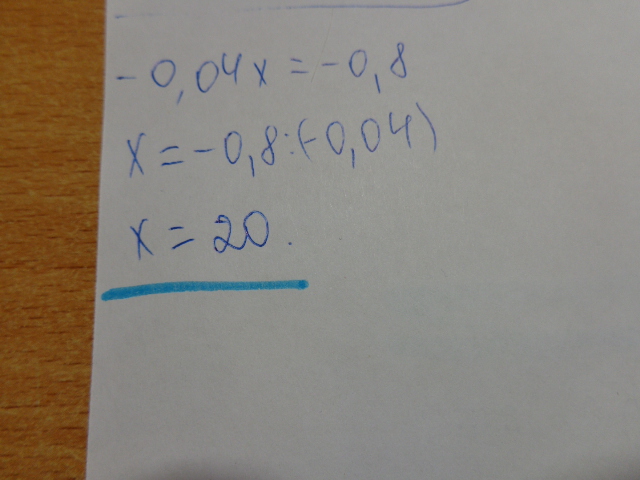 -0,04x = -0,8
x = -0,8:(-0,04)
x = 20.